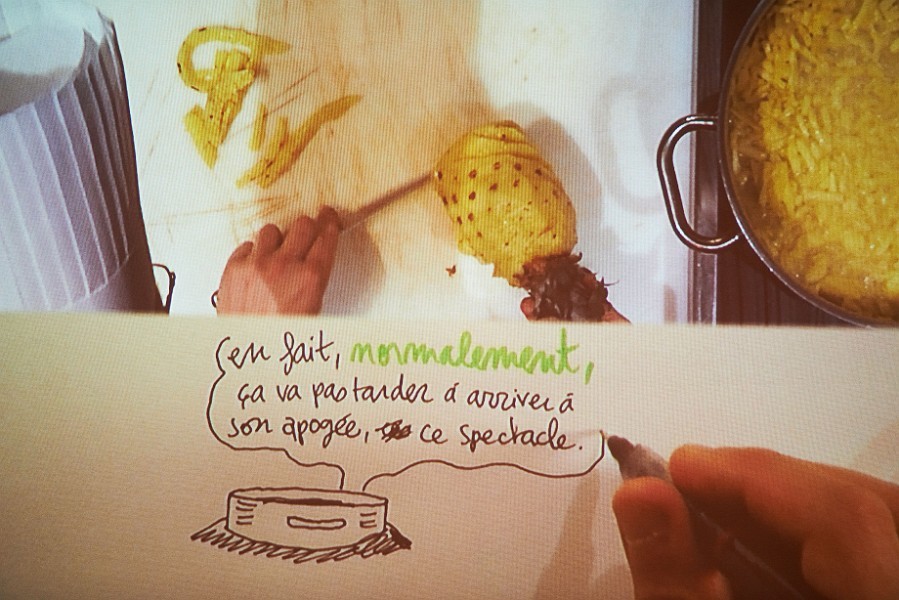 en fait, normalement,
ça va pas tarder á arriver á
son apogée, ce spectacle.